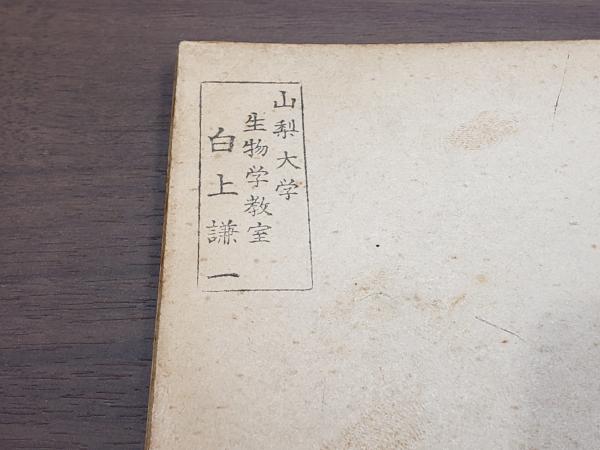 山梨大学
生物学教室
白上謙一